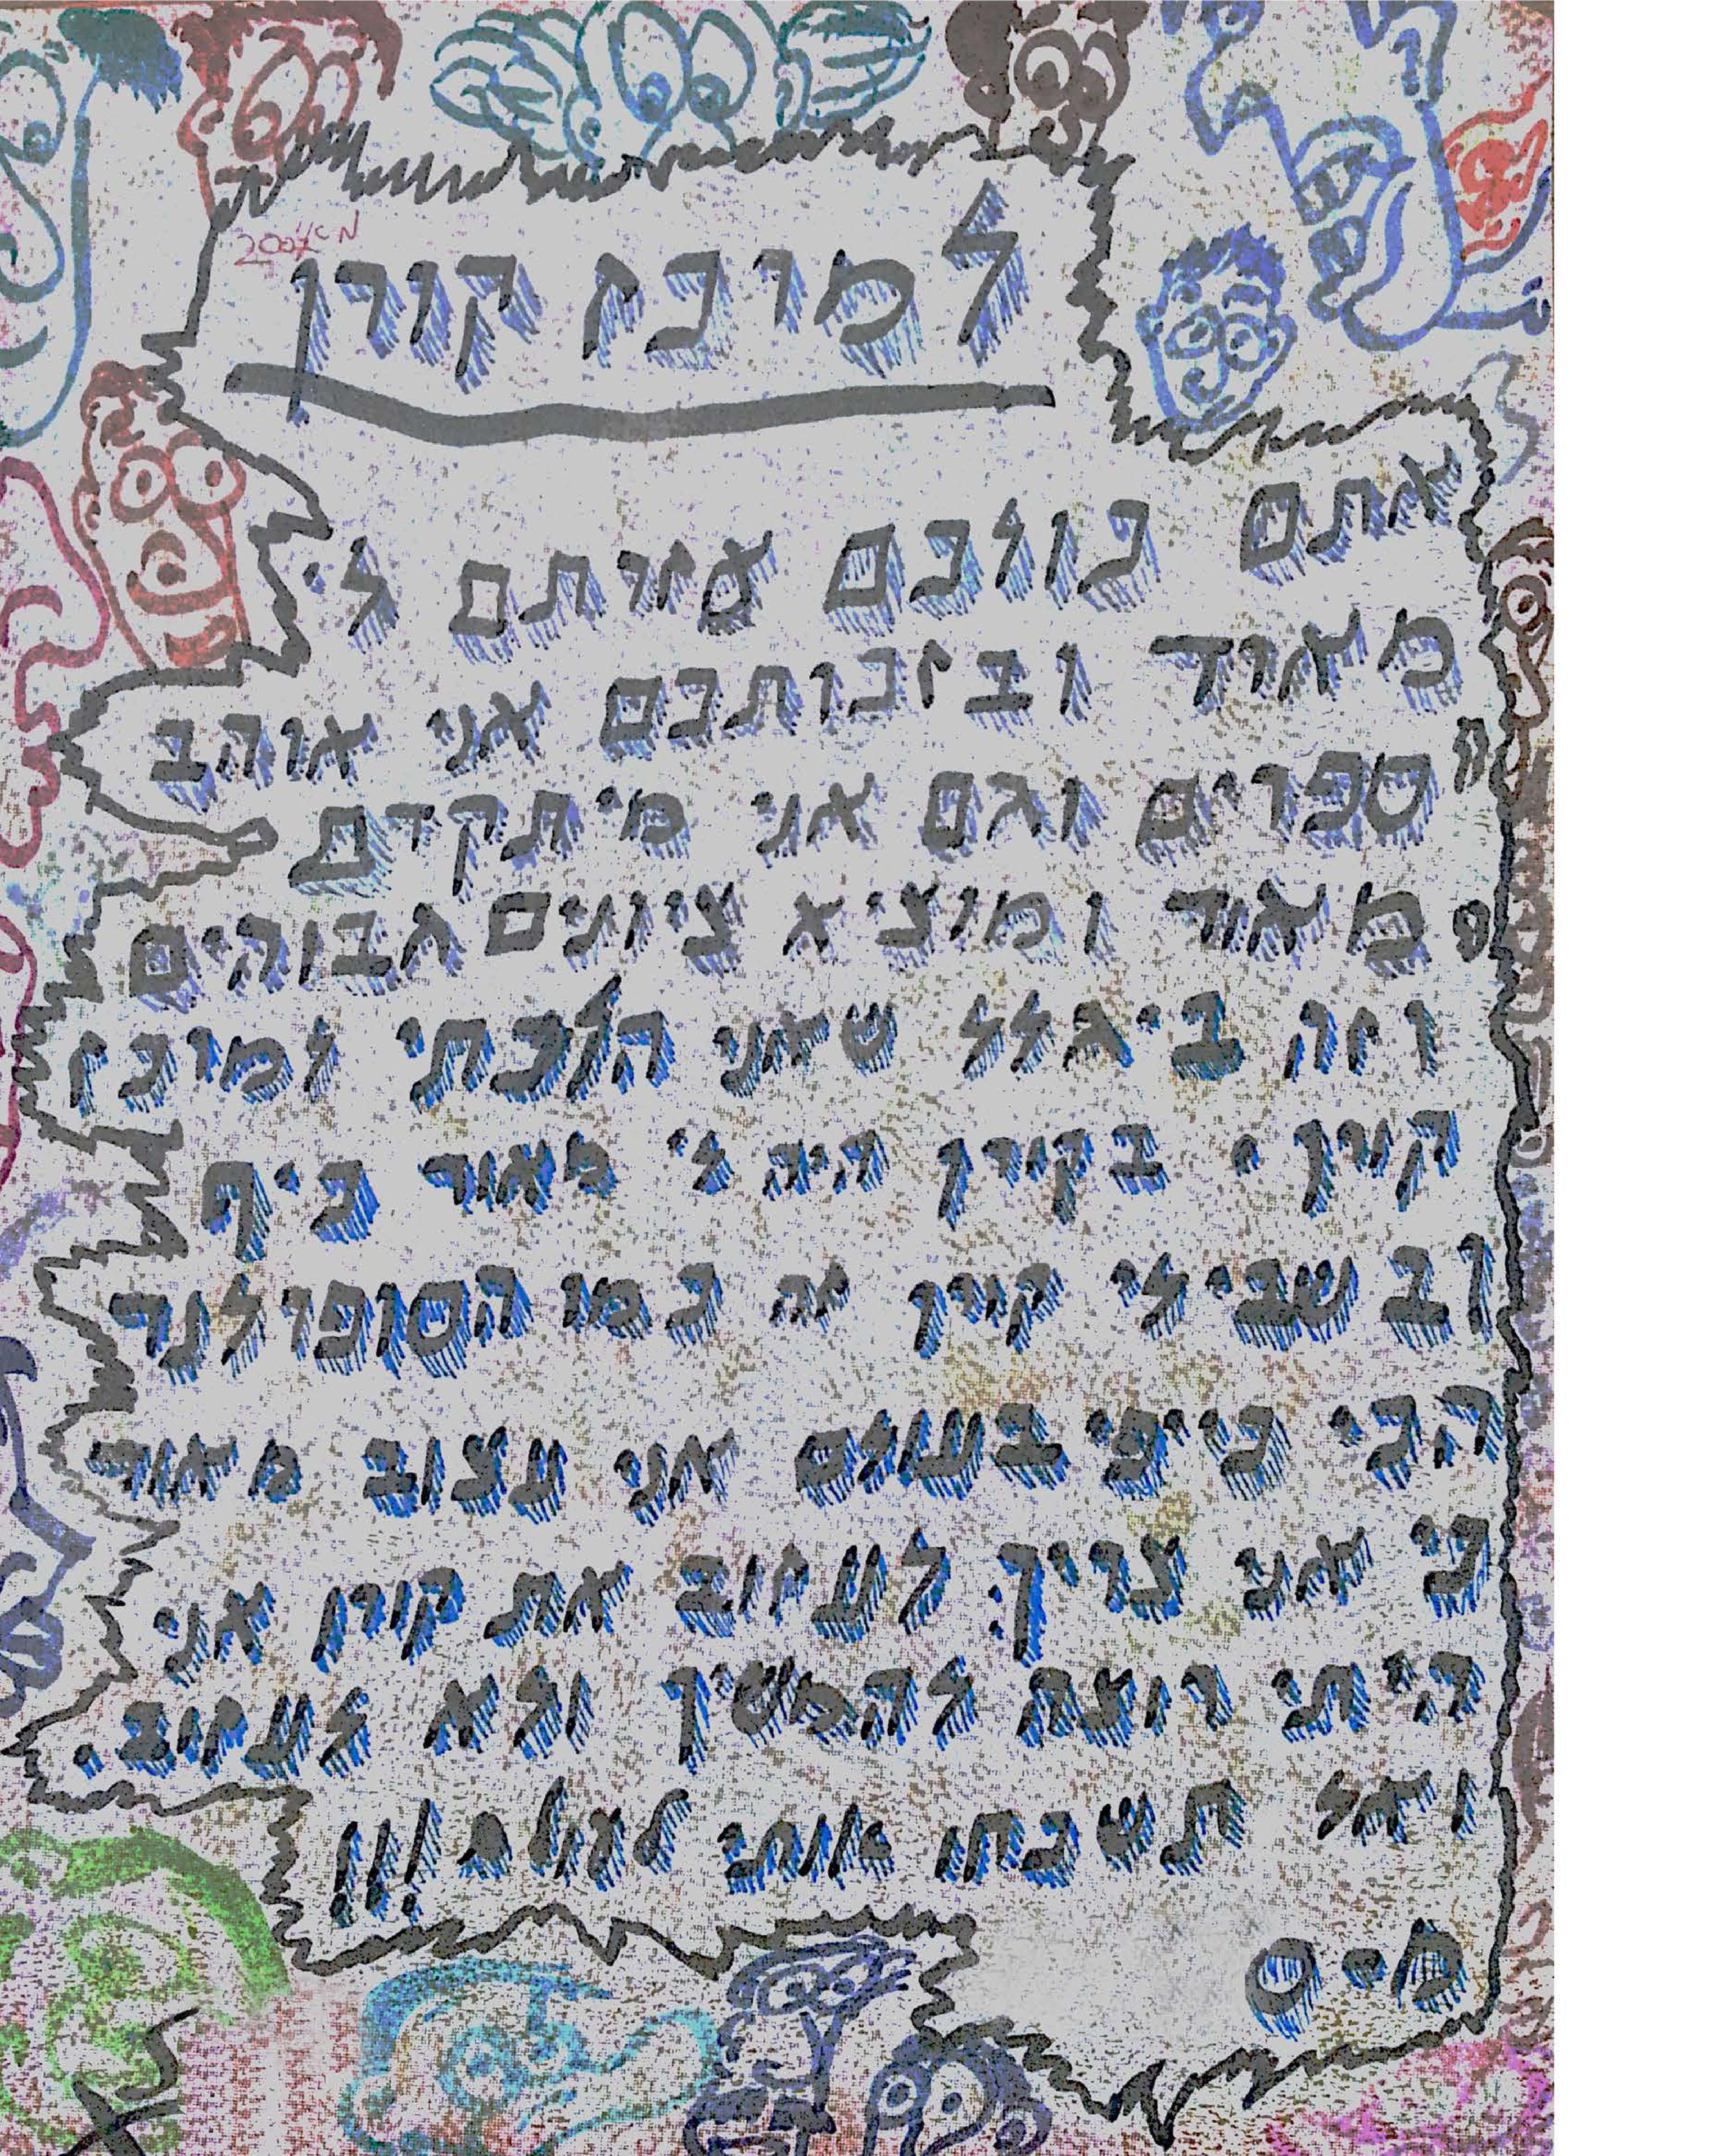 2007
למרכז קורן
אתם כולכם עזרתם לי
מאוד ובזכותכם אני אוהב
ספרים וגם אני מיתקדם
מאוד ומוציא ציונים גבוהים
וזה ביגלל שאני הלכתי למרכז
קורן. בקורן היה לי מאוד כיף
ובשבילי קורן זה כמו הסופרלנד
הכי כייפי בעולם אני עצוב מאוד
כי אני צריך לעזוב את קורן אני
הייתי רוצה להמשיך ולא לעזוב.
ואל תשכחו אותי לעולם!!!